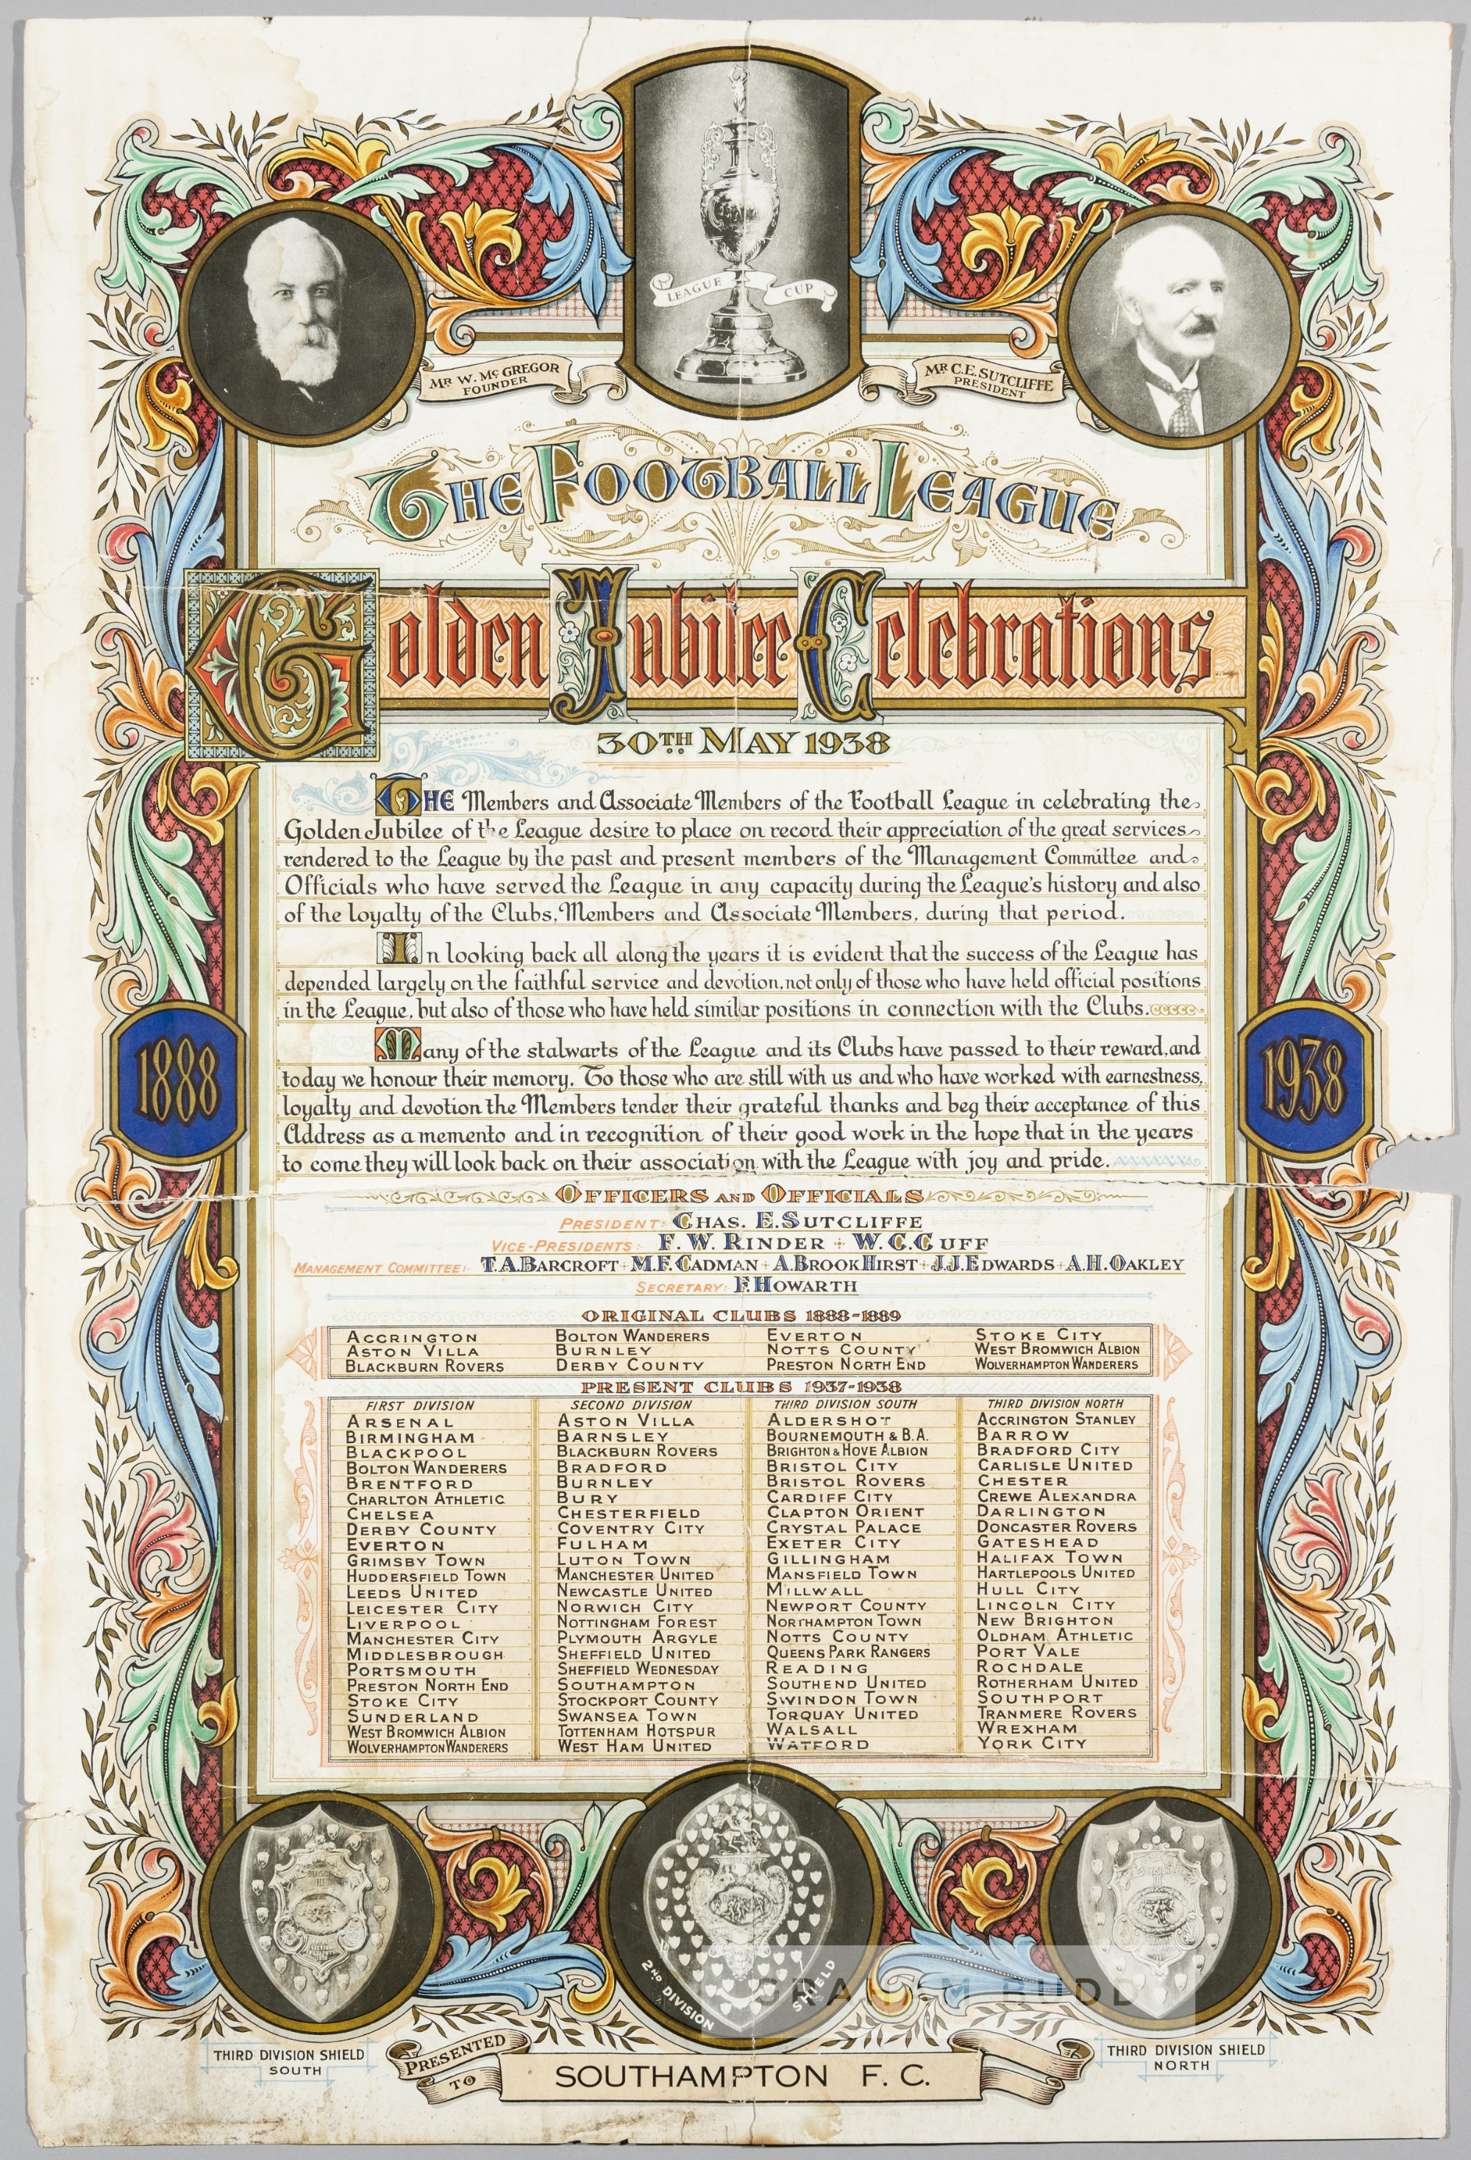 LEAGUE CUP
MR W. MC GREGOR
FOUNDER
MR C.E. SUTCLIFFE
PRESIDENT
THE FOOTBALL LEAGUE
Golden Jubilee Celebrations
30TH MAY 1938
THE Members and Associate Members of the Football League in celebrating the
Golden Jubilee of the League desire to place on record their appreciation of the great services
rendered to the League by the past and present members of the Management Committee and
Officials who have served the League in any capacity during the League's history and also
of the loyalty of the Clubs, Members and Associate Members, during that period.
In looking back all along the years it is evident that the success of the League has
depended largely on the faithful service and devotion, not only of those who have held official positions
in the League, but also of those who have held similar positions in connection with the Clubs.
Many of the stalwarts of the League and its Clubs have passed to their reward, and
today we honour their memory. To those who are still with us and who have worked with earnestness,
loyalty and devotion the Members tender their grateful thanks and beg their acceptance of this
Address as a memento and in recognition of their good work in the hope that in the years
to come they will look back on their association with the League with joy and pride.
1888
1938
OFFICERS AND OFFICIALS
PRESIDENT: CHAS. E. SUTCLIFFE
VICE-PRESIDENTS: F. W. RINDER + W. C. CUFF
MANAGEMENT COMMITTEE: T.A. BARCROFT + M.F. CADMAN + A. BROOK HIRST + J.J. EDWARDS + A.H. OAKLEY
SECRETARY: F. HOWARTH
ORIGINAL CLUBS 1888-1889
ACCRINGTON BOLTON WANDERERS EVERTON STOKE CITY
ASTON VILLA BURNLEY NOTTS COUNTY WEST BROMWICH ALBION
BLACKBURN ROVERS DERBY COUNTY PRESTON NORTH END WOLVERHAMPTON WANDERERS
PRESENT CLUBS 1937-1938
FIRST DIVISION SECOND DIVISION THIRD DIVISION SOUTH THIRD DIVISION NORTH
ARSENAL ASTON VILLA ALDERSHOT ACCRINGTON STANLEY
BIRMINGHAM BARNSLEY BOURNEMOUTH & B.A. BARROW
BLACKPOOL BLACKBURN ROVERS BRIGHTON & HOVE ALBION BRADFORD CITY
BOLTON WANDERERS BRADFORD BRISTOL CITY CARLISLE UNITED
BRENTFORD BURNLEY BRISTOL ROVERS CHESTER
CHARLTON ATHLETIC BURY CARDIFF CITY CREWE ALEXANDRA
CHELSEA CHESTERFIELD CLAPTON ORIENT DARLINGTON
DERBY COUNTY COVENTRY CITY CRYSTAL PALACE DONCASTER ROVERS
EVERTON FULHAM EXETER CITY GATESHEAD
GRIMSBY TOWN LUTON TOWN GILLINGHAM HALIFAX TOWN
HUDDERSFIELD TOWN MANCHESTER UNITED MANSFIELD TOWN HARTLEPOOLS UNITED
LEEDS UNITED NEWCASTLE UNITED MILLWALL HULL CITY
LEICESTER CITY NORWICH CITY NEWPORT COUNTY LINCOLN CITY
LIVERPOOL NOTTINGHAM FOREST NORTHAMPTON TOWN NEW BRIGHTON
MANCHESTER CITY PLYMOUTH ARGYLE NOTTS COUNTY OLDHAM ATHLETIC
MIDDLESBROUGH SHEFFIELD UNITED QUEENS PARK RANGERS PORT VALE
PORTSMOUTH SHEFFIELD WEDNESDAY READING ROCHDALE
PRESTON NORTH END SOUTHAMPTON SOUTHEND UNITED ROTHERHAM UNITED
STOKE CITY STOCKPORT COUNTY SWINDON TOWN SOUTHPORT
SUNDERLAND SWANSEA TOWN TORQUAY UNITED TRANMERE ROVERS
WEST BROMWICH ALBION TOTTENHAM HOTSPUR WALSALL WREXHAM
WOLVERHAMPTON WANDERERS WEST HAM UNITED WATFORD YORK CITY
2ND DIVISION SHIELD
GRAHAM BUDD
THIRD DIVISION SHIELD
SOUTH
PRESENTED
TO
SOUTHAMPTON F. C.
THIRD DIVISION SHIELD
NORTH